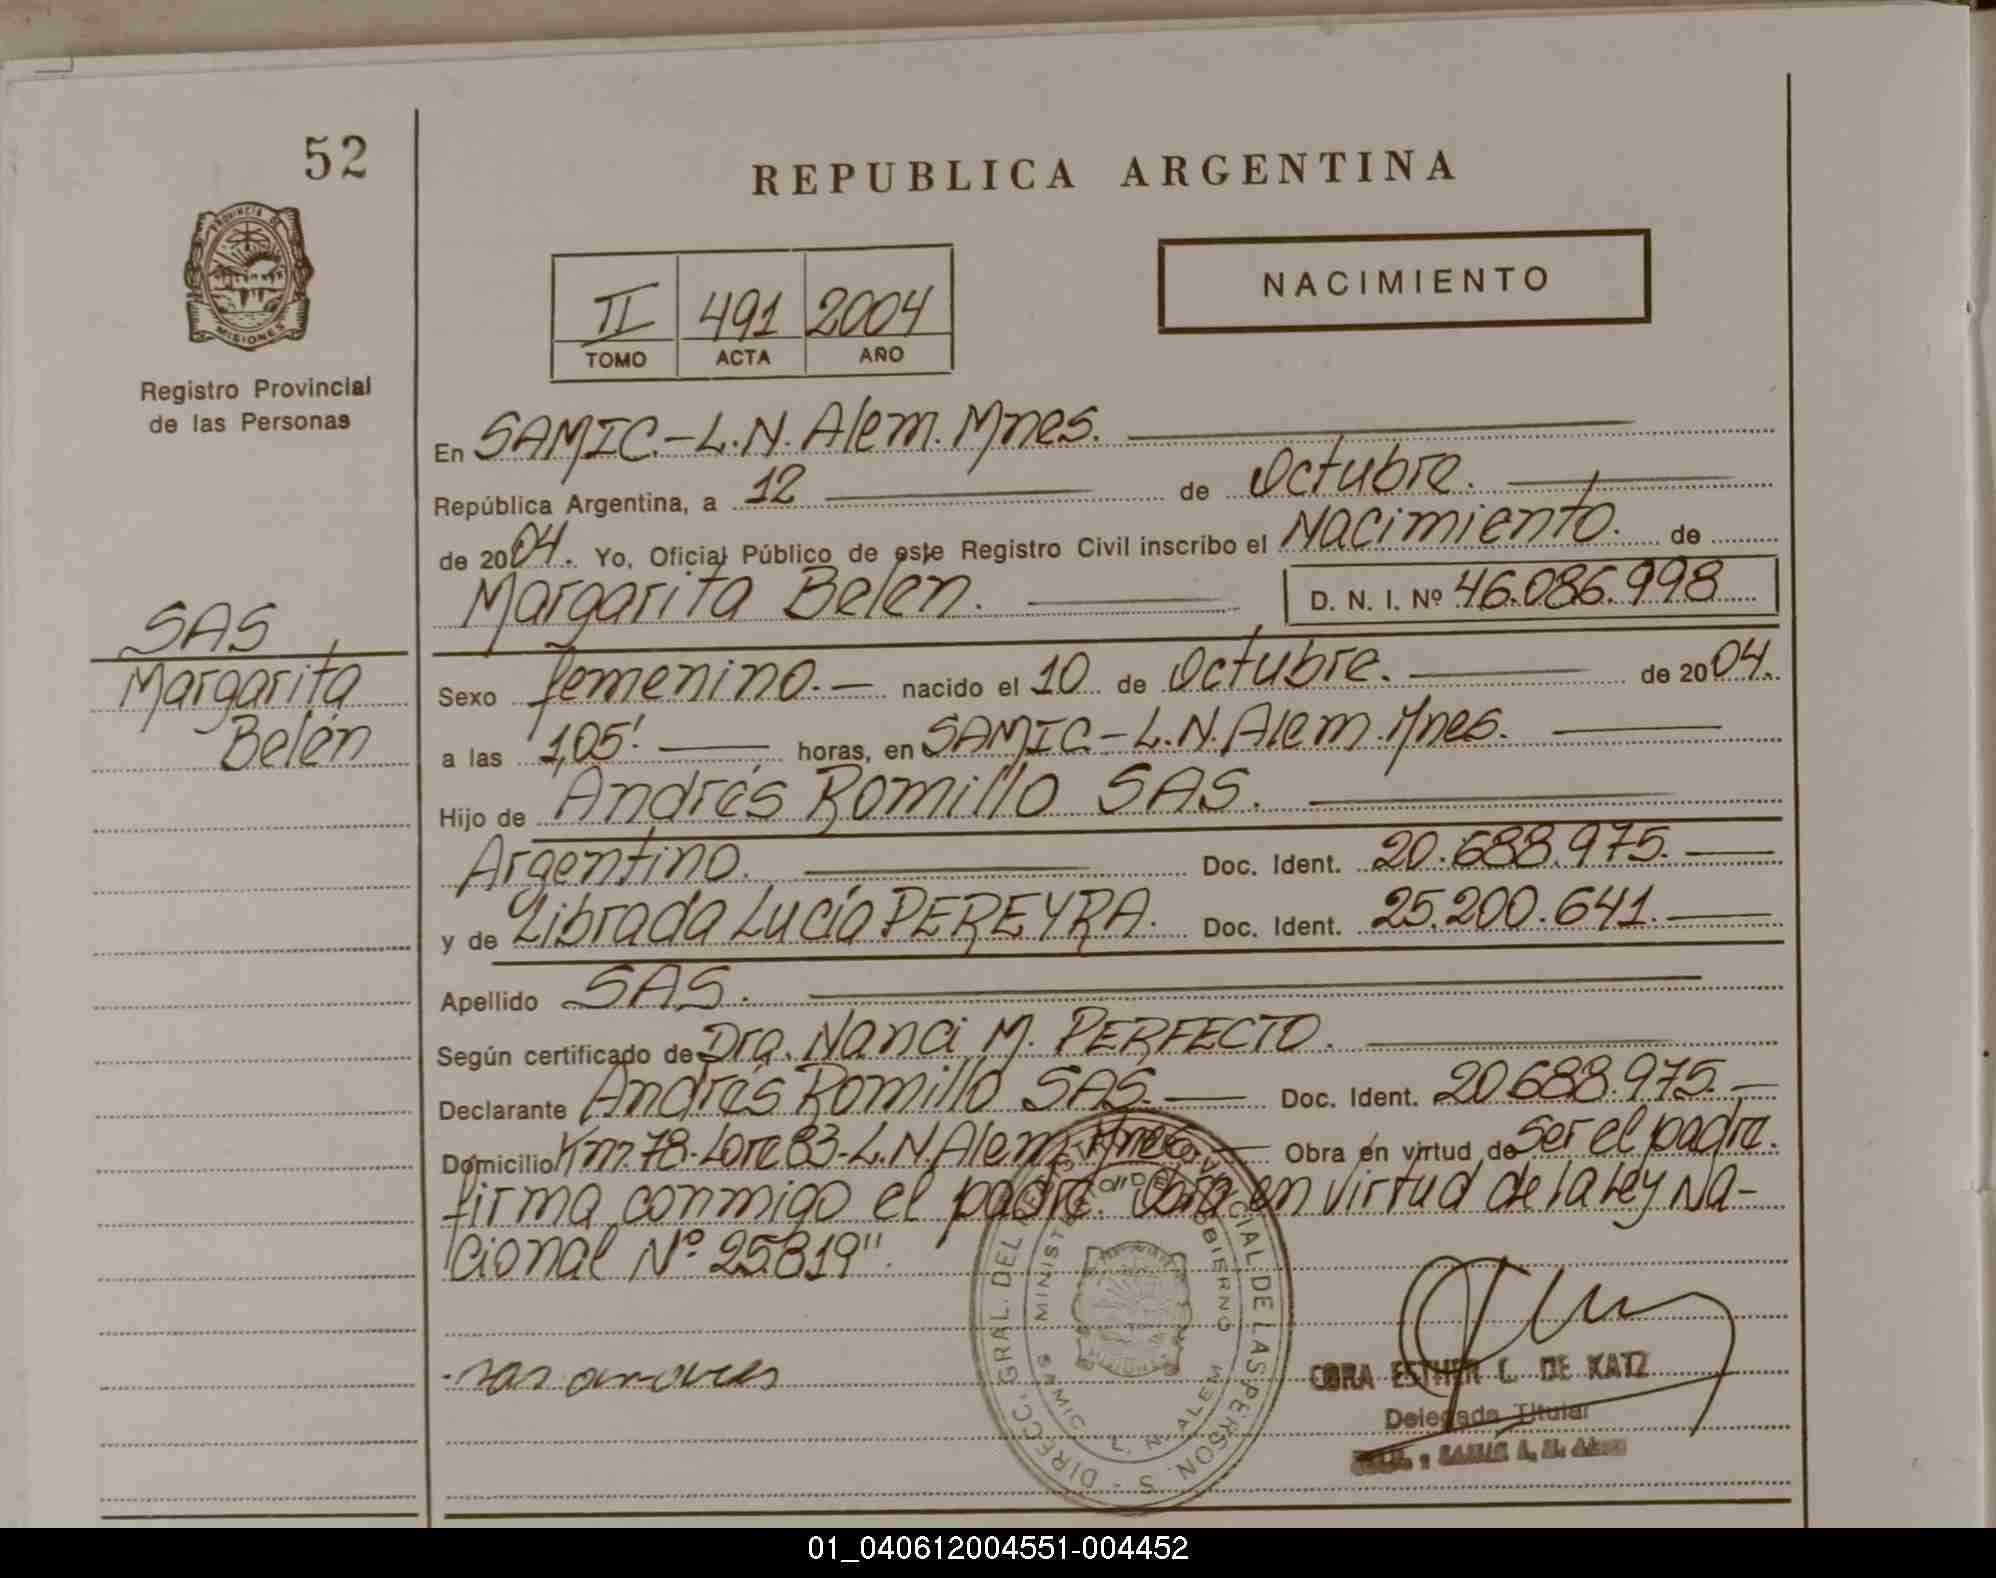 52
REPUBLICA ARGENTINA
PROVINCIA DE
MISIONES
Registro Provincial
de las Personas
NACIMIENTO
II 491 2004
TOMO ACTA AÑO
En SAMIC.-L.N. Alem. Mnes.
República Argentina, a 12 de Octubre.
de 2004. Yo, Oficial Público de este Registro Civil inscribo el Nacimiento. de
Margarita Belen. D. N. I. Nº 46.086.998
SAS
Margarita
Belén
Sexo femenino.- nacido el 10 de Octubre. de 2004.
a las 1,05'. horas, en SAMIC-L.N. Alem. Mnes.
Hijo de Andrés Romillo SAS.
Argentino. Doc. Ident. 20.688.975.
y de Librada Lucía PEREYRA. Doc. Ident. 25.200.641.
Apellido SAS.
Según certificado de Dra. Nanci M. PERFECTO.
Declarante Andrés Romillo SAS. Doc. Ident. 20688.975.
Domicilio Km. 78-Lote 83-L.N. Alem-Mnes. Obra en virtud de Ser el padre.
firma conmigo el padre. Obra en virtud de la Ley Na-
cional Nº 25.819".
DIRECC. GRAL. DEL REGISTRO PROVINCIAL DE LAS PERSON. S
MINISTERIO DE GOBIERNO
SAMIC L. N. ALEM
MISIONES
ESTHER C. DE KATZ
Delegada Titular
01_040612004551-004452